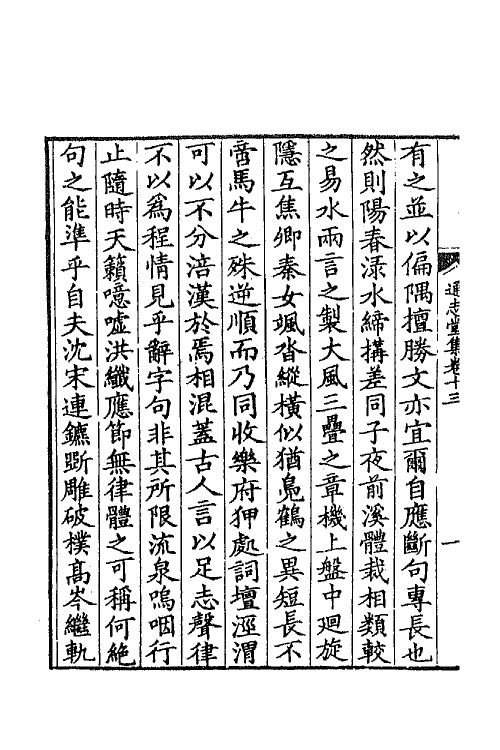 通志堂集卷十三
一
有之並以偏隅擅勝文亦宜爾自應斷句專長也
然則陽春渌水締搆差同子夜前溪體裁相類較
之易水兩言之製大風三疊之章機上盤中廻旋
隱互焦卿秦女颯沓縱橫似猶鳧鶴之異短長不
啻馬牛之殊逆順而乃同收樂府狎處詞壇涇渭
可以不分涪漢於焉相混蓋古人言以足志聲律
不以爲程情見乎辭字句非其所限流泉嗚咽行
止隨時天籟噫噓洪纖應節無律體之可稱何絶
句之能準乎自夫沈宋連鑣斲雕破樸高岑繼軌